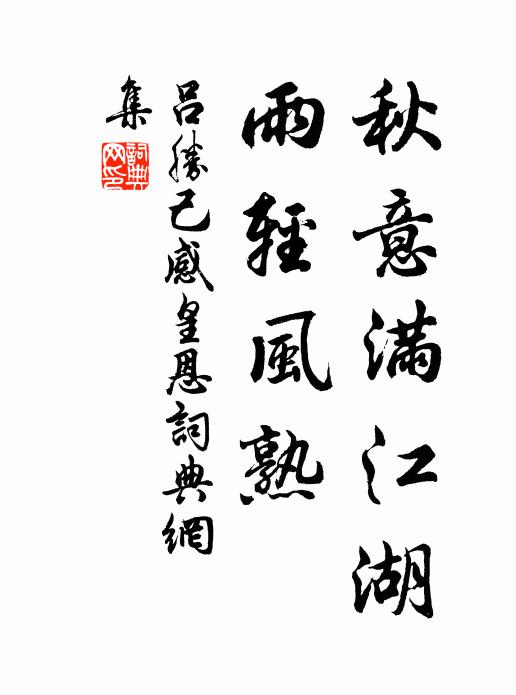 秋意滿江湖
雨輕風熟
呂勝己感皇恩詞典網
集
詞典
网印